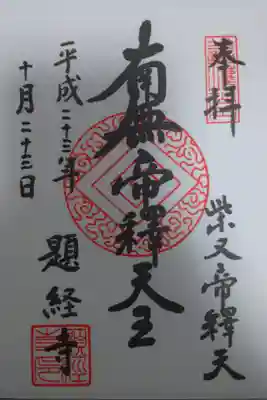 奉拝
柴又帝釋天
南無帝釋天王
平成二十三年
十月二十三日
題経寺